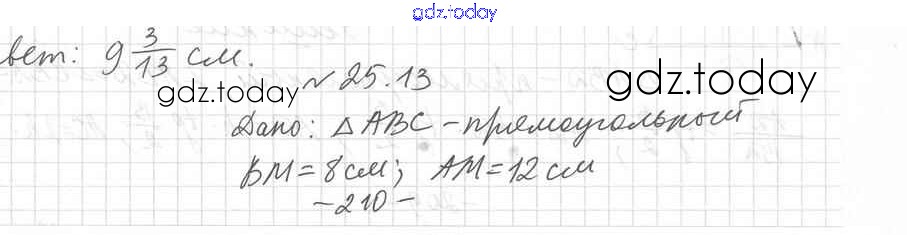 gdz.today
вет: 9 3/13 см.
gdz.today
№ 25.13
gdz.today
Дано: △ABC - прямоугольный
BM = 8 см; AM = 12 см
- 210 -